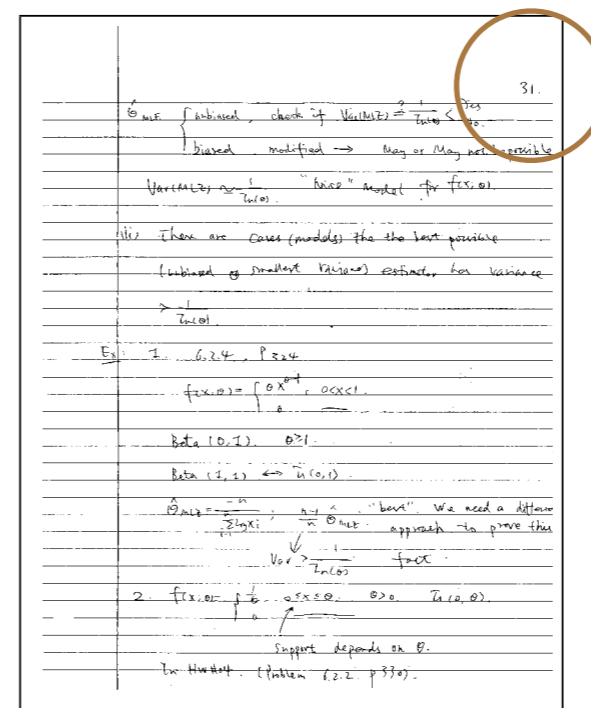 31.
θ̂ MLE { unbiased, check if Var(MLE) ?= 1/In(θ) < Yes No.
biased, modified → May or May not be possible
Var(MLE) ≈ 1/In(θ) "nice" model for f(x,θ).
iii) There are cases (models) the the best possible
(unbiased & smallest variance) estimator has variance
> 1/In(θ)
Ex: 1. 6.2.4, P324
f(x,θ) = { θ x^θ-1, 0<x<1.
0
Beta (θ,1). θ>1.
Beta (1,1) ↔ U(0,1).
θ̂ MLE = -n / Σ log xi ; n-1/n θ̂ MLE. "best". We need a different
i=1
approach to prove this
Var > 1/In(θ) fact.
2. f(x,θ) = { 1/θ 0≤x≤θ. θ>0 U(0,θ).
0
Support depends on θ.
In HW#04. (Problem 6.2.2. p330).